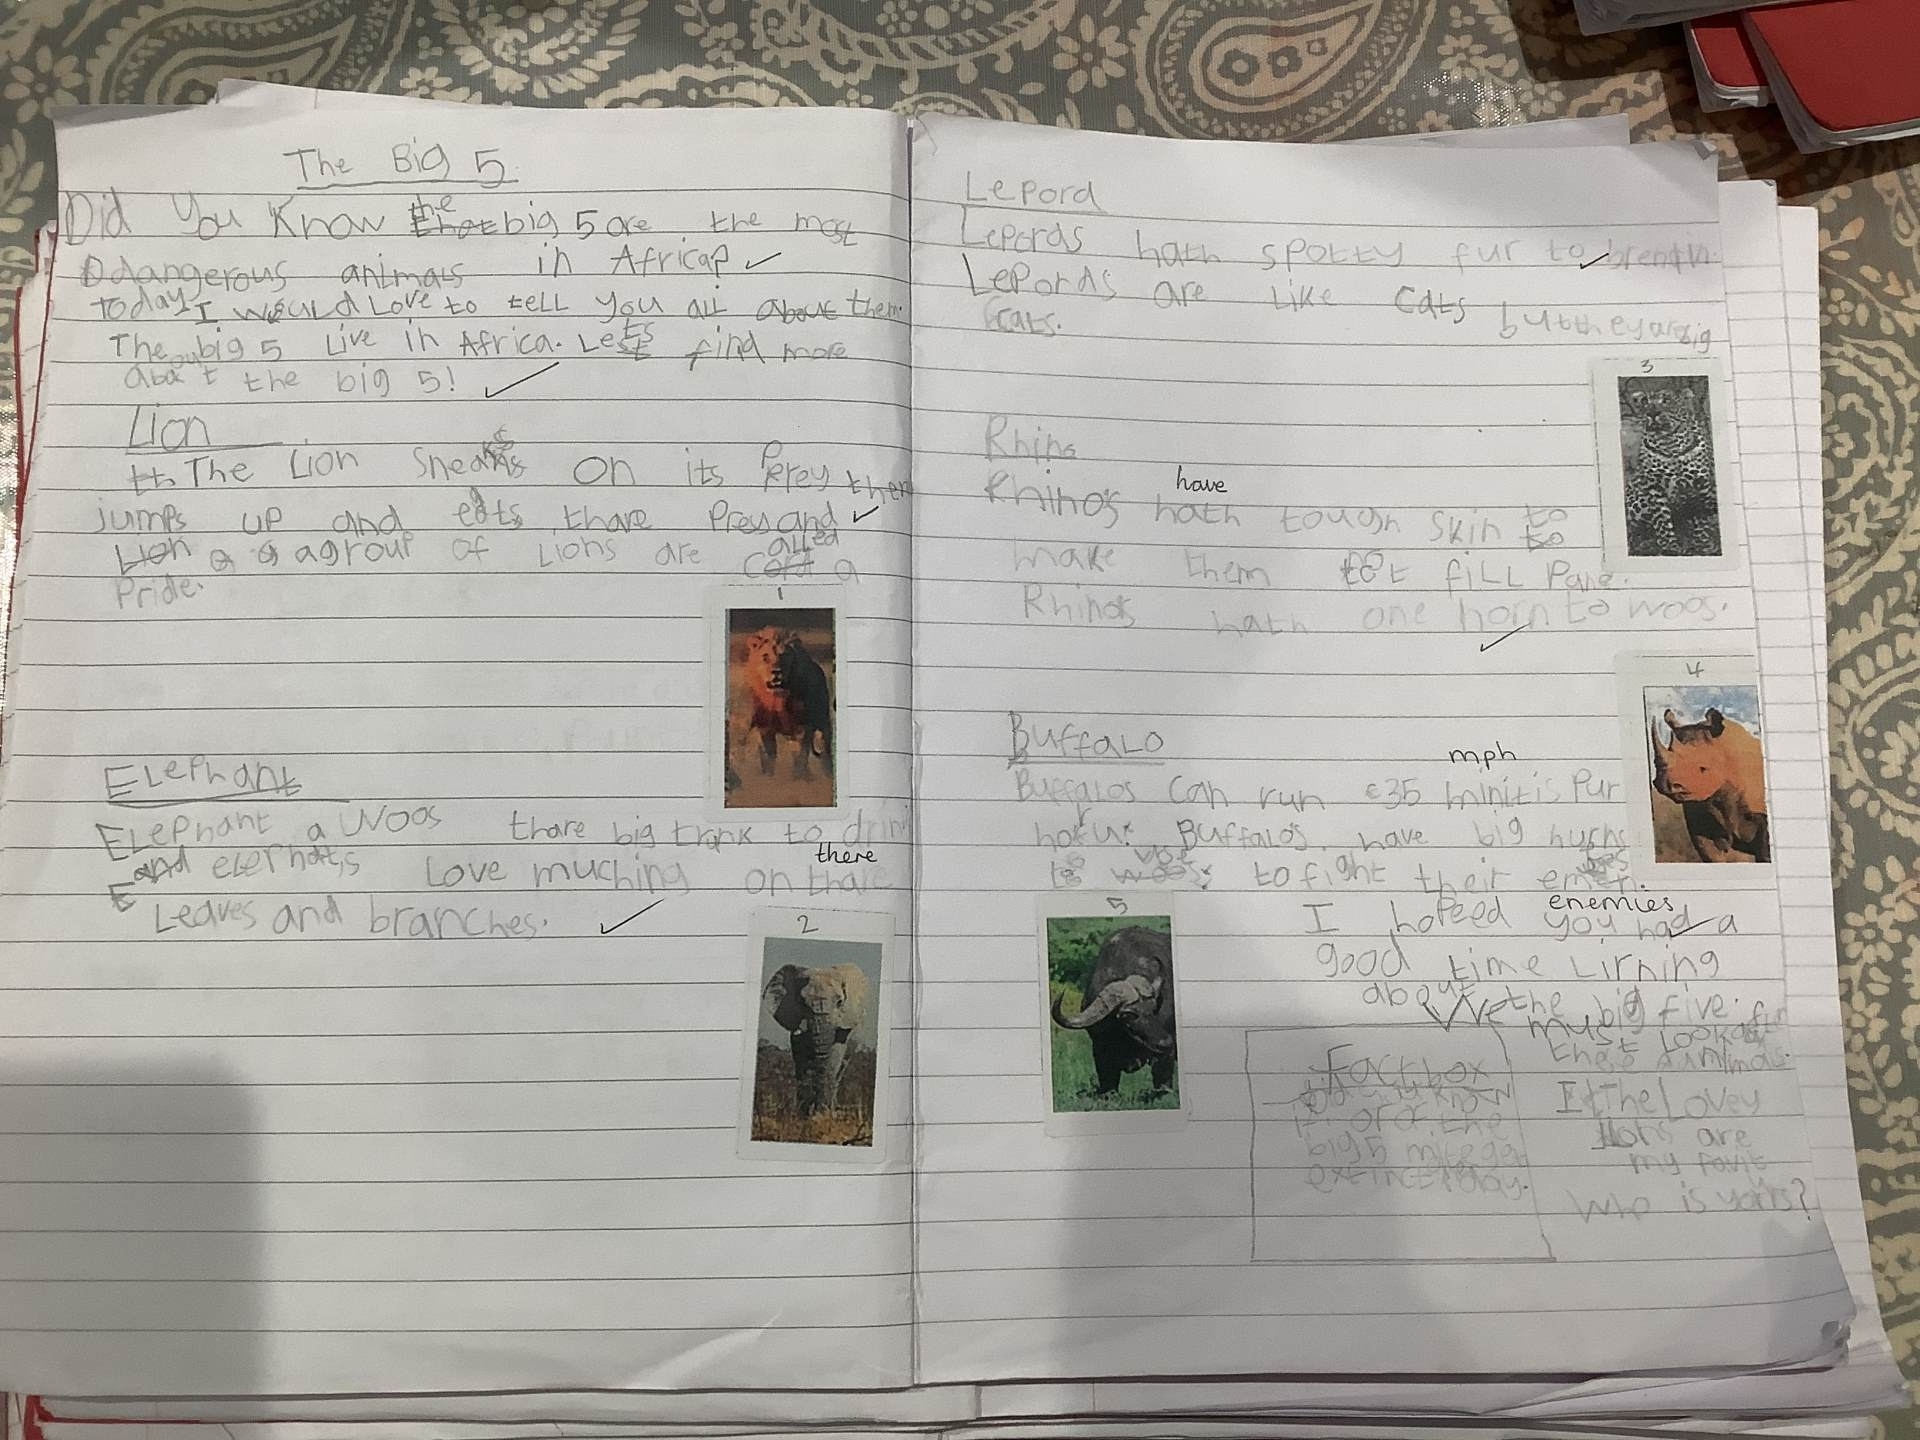 The Big 5.
Did you know the that big 5 are the most
dangerous animals in Africa?
Today I would Love to tell you all about them.
The big 5 Live in Africa. Lets find more
about the big 5!
Lion
The Lion sneaks on its Prey then
jumps up and eats thare Prey and
Lion a a agroup of Lions are called a
Pride.
1
Elephant
Elephant a Woos thare big trunk to drink
there
and elephats Love muching on thare
Leaves and branches.
2
Lepord
Lepords hath spotty fur to
Lepords are Like Cats but they are big
Cats.
3
Rhino
have
Rhino's hath tough skin to
make them not fill Pane.
Rhino's hath one horn to Woos.
4
Buffalo
mph
Buffalos Can run 35 minitis Pur
Buffalos have big hurns
to use to fight their
enemies
I hopeed you had a
good time Lirning
about the big five. We
must Look after
thes
Factbox
know
or the
big 5 mite get
extinct
The Lovey
Lions are
my favit
Who is yours?
5